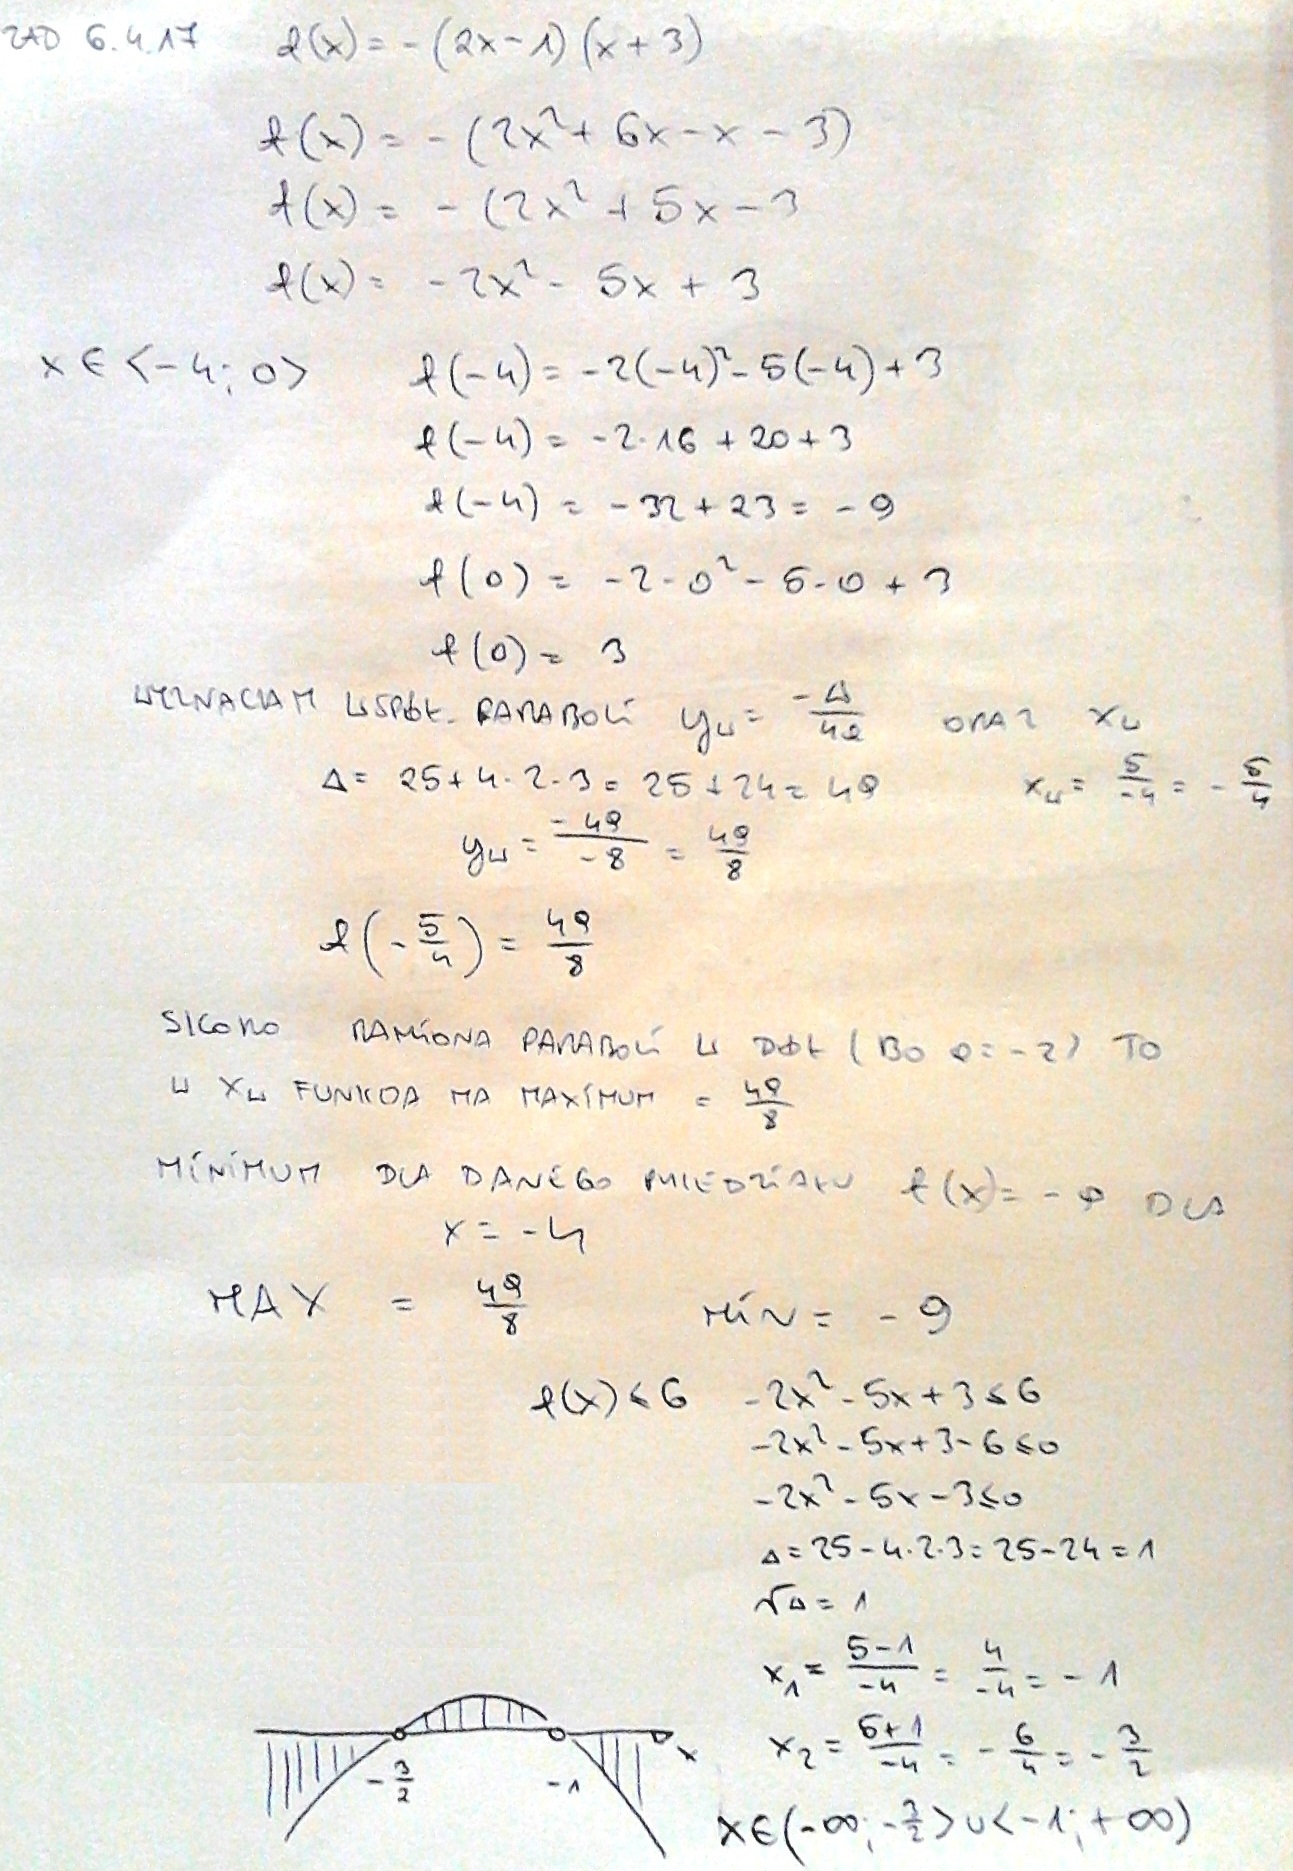 ZAD 6.4.17 f(x) = -(2x-1)(x+3)
f(x) = -(2x²+6x-x-3)
f(x) = -(2x²+5x-3
f(x) = -2x²-5x+3
x∈<-4;0> f(-4) = -2(-4)²-5(-4)+3
f(-4) = -2·16+20+3
f(-4) = -32+23 = -9
f(0) = -2·0²-5·0+3
f(0) = 3
WYZNACZAM WSPÓŁ. PARABOLI yw = -Δ/4a ORAZ xw
Δ = 25+4·2·3 = 25+24 = 49 xw = 5/-4 = -5/4
yw = -49/-8 = 49/8
f(-5/4) = 49/8
SKORO RAMIONA PARABOLI W DÓŁ (BO a=-2) TO
W xw FUNKCJA MA MAXIMUM = 49/8
MINIMUM DLA DANEGO PRZEDZIAŁU f(x) = -9 DLA
x = -4
MAX = 49/8 MIN = -9
f(x)≤6 -2x²-5x+3≤6
-2x²-5x+3-6≤0
-2x²-5x-3≤0
Δ=25-4·2·3=25-24=1
√Δ=1
x₁ = 5-1/-4 = 4/-4 = -1
x₂ = 5+1/-4 = -6/4 = -3/2
-3/2 -1 x
x∈(-∞;-3/2>∪<-1;+∞)